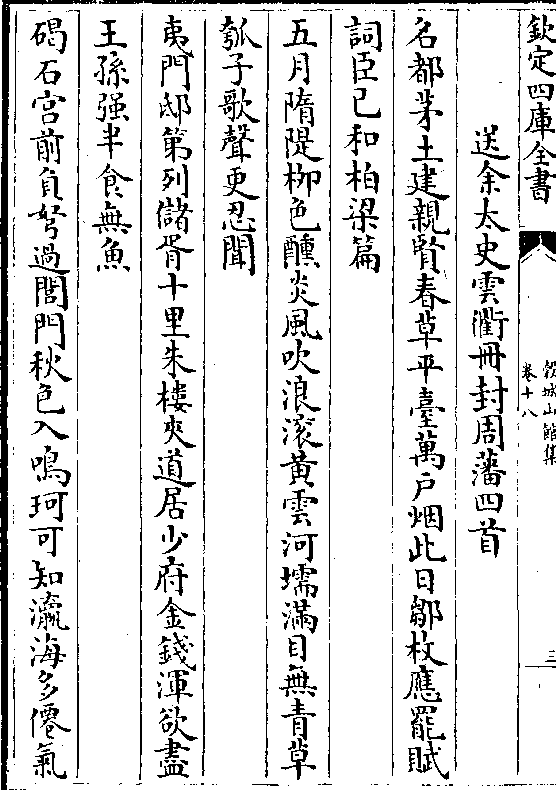 欽定四庫全書
穀城山館集
卷十八
三
送余太史雲衢冊封周藩四首
名都茅土建親賢春草平臺萬戶烟此日鄒枚應罷賦
詞臣已和柏梁篇
五月隋隄柳色醺炎風吹浪滚黄雲河壖滿目無青草
瓠子歌聲更忍聞
夷門邸第列儲胥十里朱樓夾道居少府金錢渾欲盡
王孫强半食無魚
碣石宫前負弩過閭門秋色入鳴珂可知瀛海多僊氣